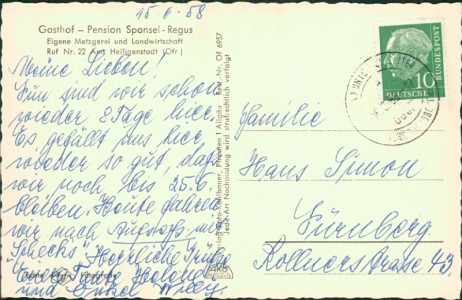 15.6.58
Gasthof – Pension Sponsel-Regus
Eigene Metzgerei und Landwirtschaft
Ruf Nr. 22 Amt Heiligenstadt (Ofr.)
Meine Lieben!
Nun sind wir schon
wieder 8 Tage hier.
Es gefällt uns hier
wieder so gut, daß
wir noch bis 25.6.
bleiben. Heute fahren
wir nach Aufseß mit
"Schecks". Herzliche Grüße
Tante
und Onkel Willy
Best. Nr. Of 6957
Jede Art Nachbildung wird strafrechtlich verfolgt
10
DEUTSCHE BUNDESPOST
Familie
Hans Simon
Nürnberg
Kollnerstraße 43